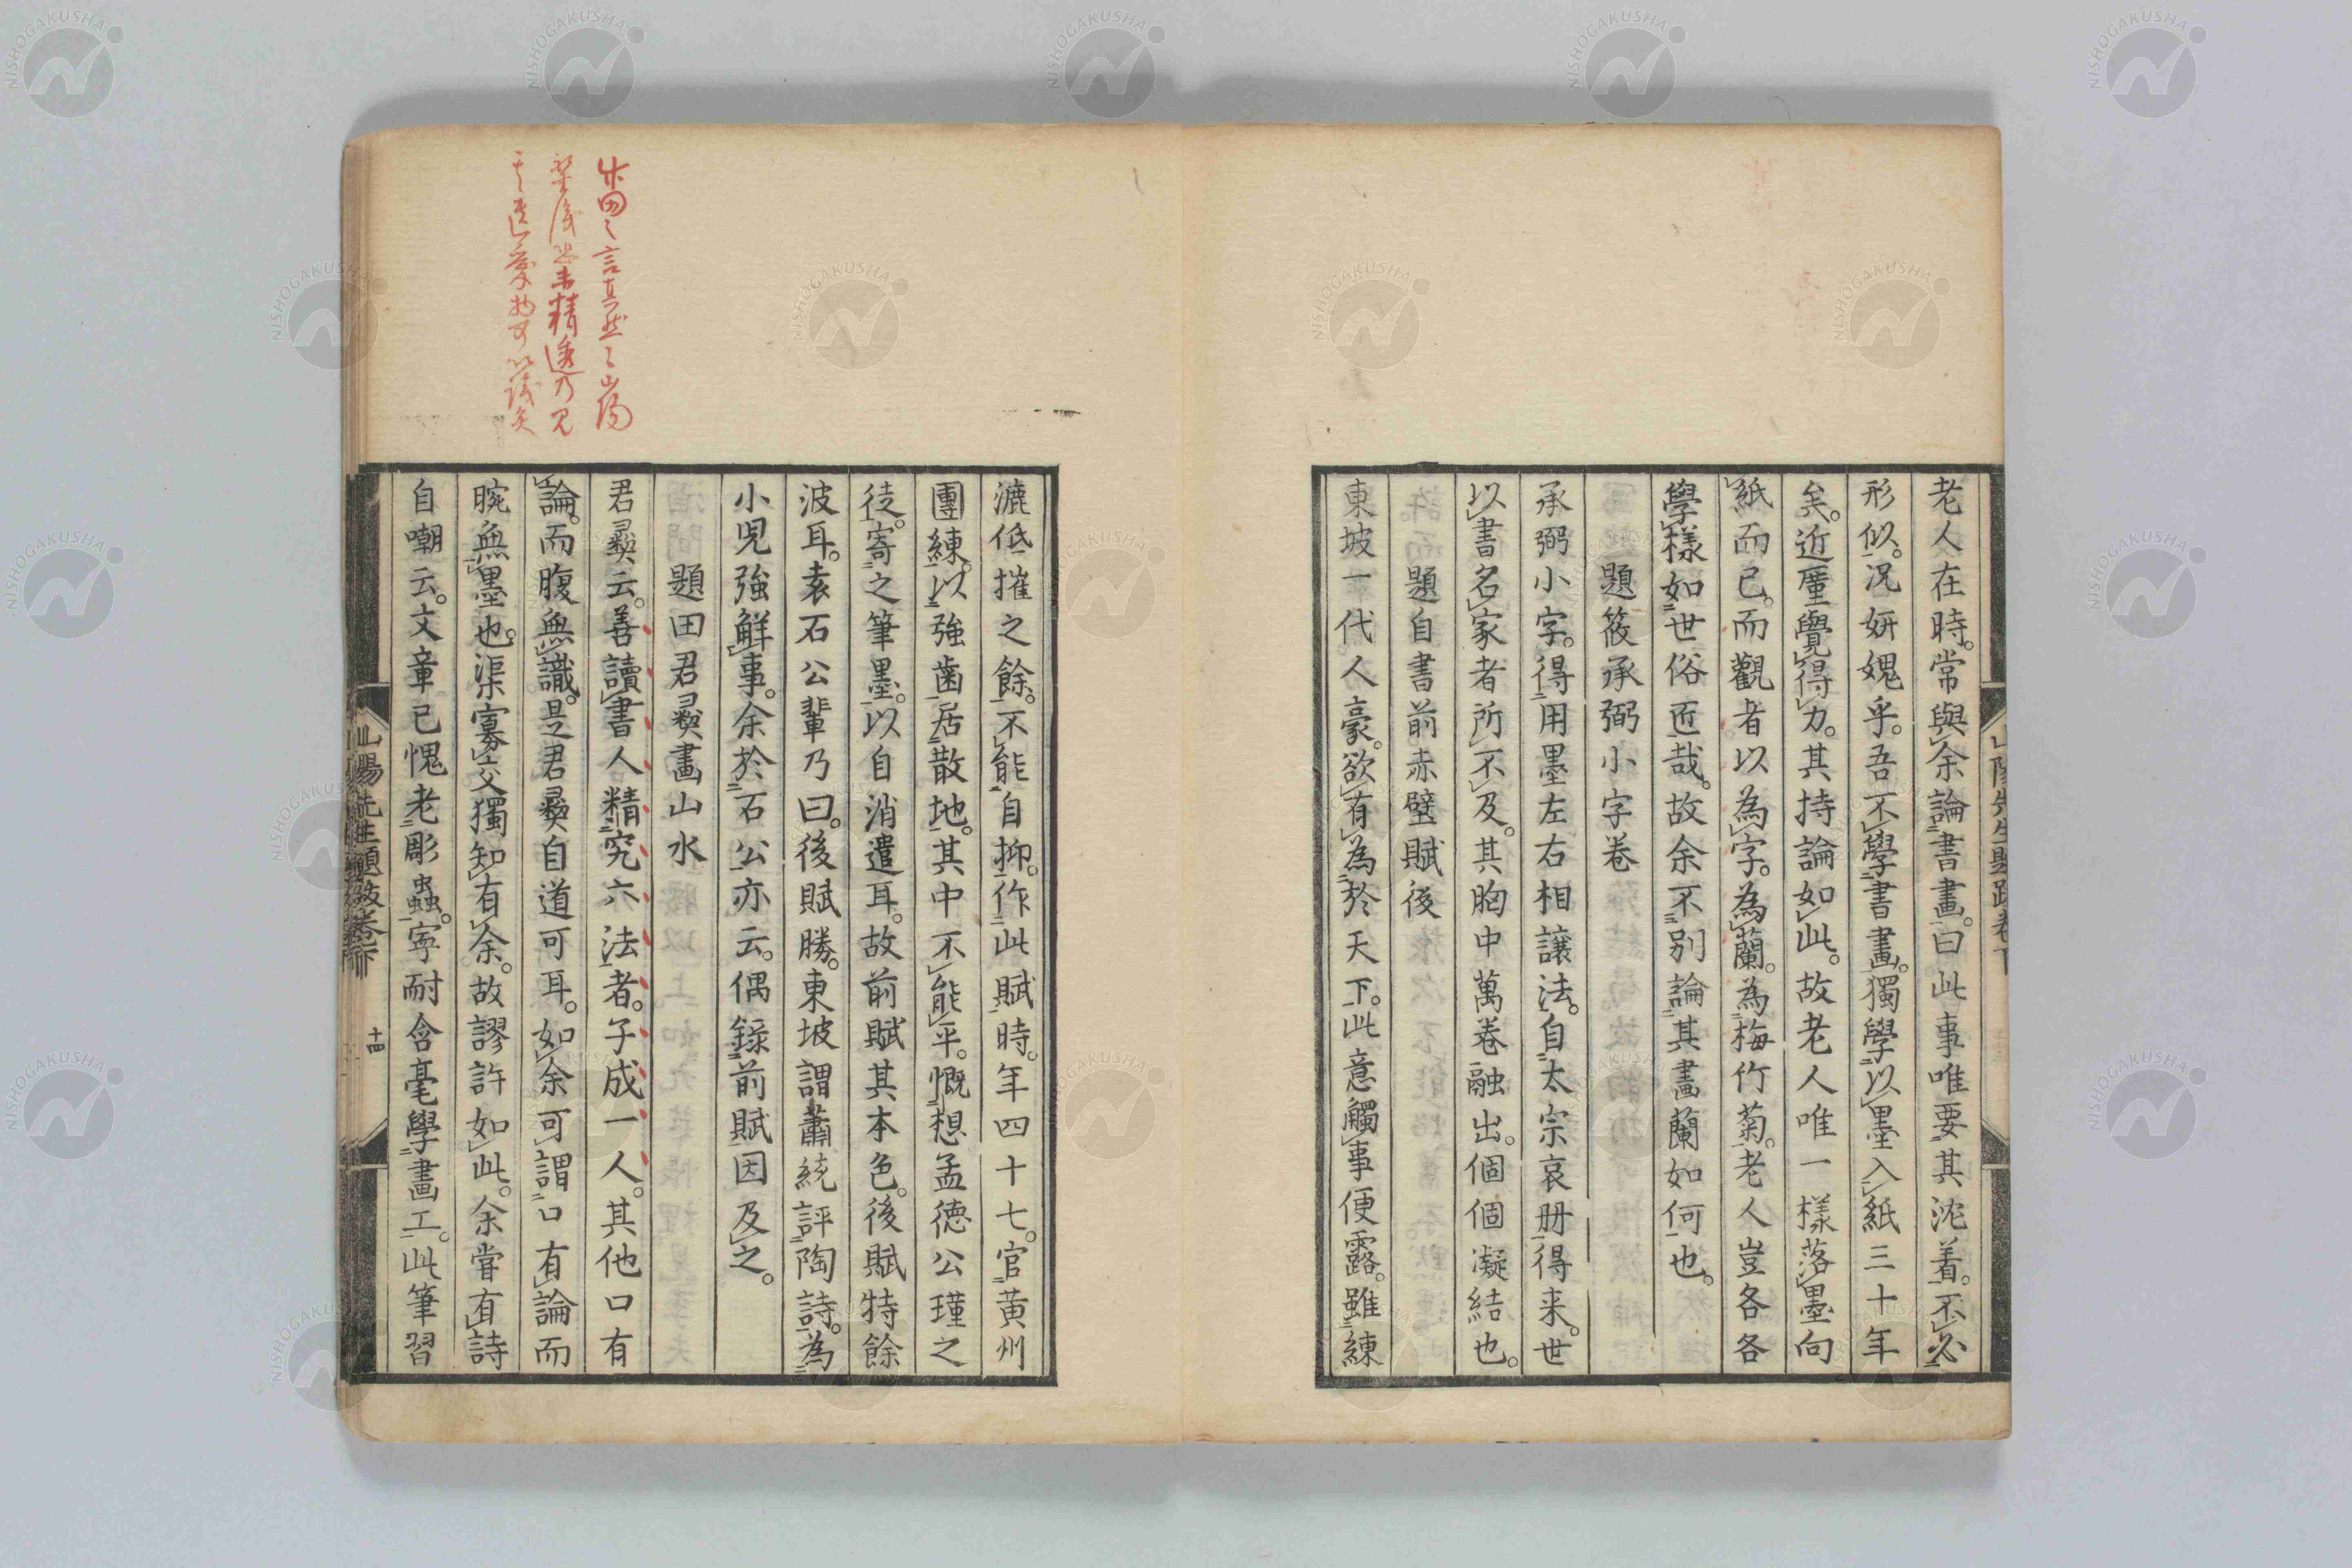 老人在時。常與余論書畫。曰此事唯要其沈着。不必
形似。況妍媸乎。吾不學書畫。獨學以墨入紙三十年
矣。近厪覺得力。其持論如此。故老人唯一樣落墨向
紙而已。而觀者以為字。為蘭。為梅竹菊。老人豈各各
學樣如世俗匠哉。故余不別論其畫蘭如何也。
題筱承弼小字卷
承弼小字。得用墨左右相讓法。自太宗哀册得来。世
以書名家者所不及。其胸中萬卷融出。個個凝結也。
題自書前赤壁賦後
東坡一代人豪。欲有為於天下。此意觸事便露。雖練
漉低摧之餘。不能自抑。作此賦時。年四十七。官黃州
團練。以強歯居散地。其中不能平。慨想孟徳公瑾之
徒。寄之筆墨。以自消遣耳。故前賦其本色。後賦特餘
波耳。袁石公輩乃曰。後賦勝。東坡謂蕭統評陶詩。為
小兒強觧事。余於石公亦云。偶錄前賦因及之。
題田君彛畫山水
君彛云。善讀書人精究六法者。千成一人。其他口有
論。而腹無識。是君彛自道可耳。如余可謂口有論而
腕無墨也。渠寡交獨知有余。故謬許如此。余嘗有詩
自嘲云。文章已愧老彫蟲。寧耐含毫學畫工。此筆習
山陽先生題跋卷下
十四
山陽先生題跋卷下
竹田之言真然々山陽
NISHOGAKUSHA